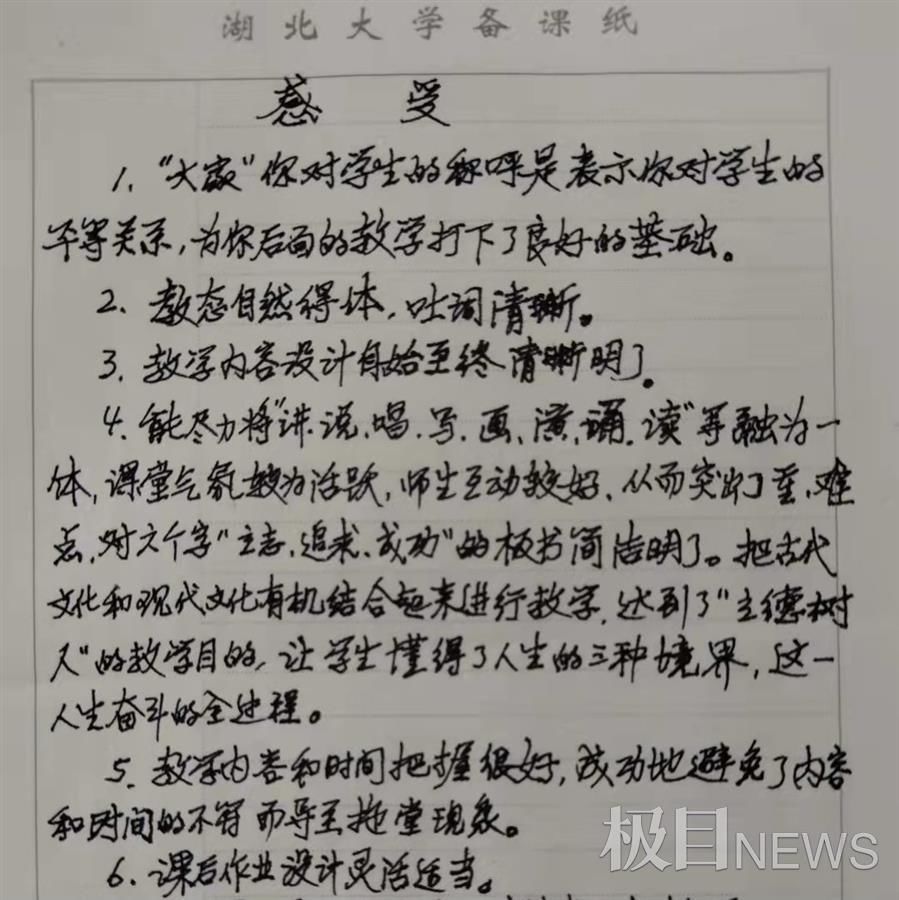 湖北大学备课纸
感受
1. “大家”你对学生的称呼是表示你对学生的
平等关系,为你后面的教学打下了良好的基础。
2. 教态自然得体,吐词清晰。
3. 教学内容设计自始至终清晰明了。
4. 能尽力将“讲、说、唱、写、画、演、诵、读”等融为一
体,课堂气氛较为活跃,师生互动较好、从而突出了重、难
点,对六个字“立志、追求、成功”的板书简洁明了。把古代
文化和现代文化有机结合起来进行教学,达到了“立德树
人”的教学目的,让学生懂得了人生的三种境界,这一
人生奋斗的全过程。
5. 教学内容和时间把握很好,成功地避免了内容
和时间的不符而导至拖堂现象。
6. 课后作业设计灵活适当。
极目NEWS